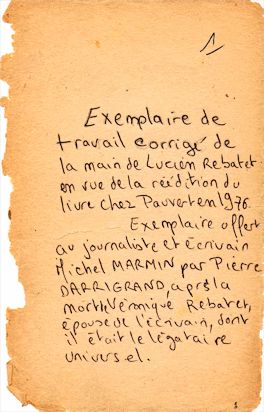 1
Exemplaire de
travail corrigé de
la main de Lucien Rebatet
en vue de la réédition du
livre chez Pauvert en 1976.
Exemplaire offert
au journaliste et écrivain
Michel MARMIN par Pierre
DARRIGRAND, après la
mort de Véronique Rebatet,
épouse de l'écrivain, dont
il était le légataire
universel.
1